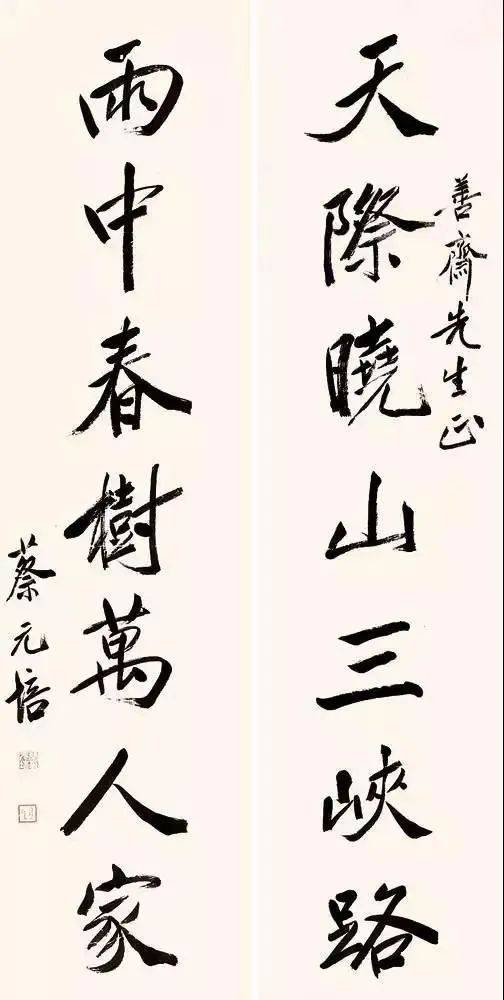 善齋先生正
天際曉山三峽路
雨中春樹萬人家
蔡元培